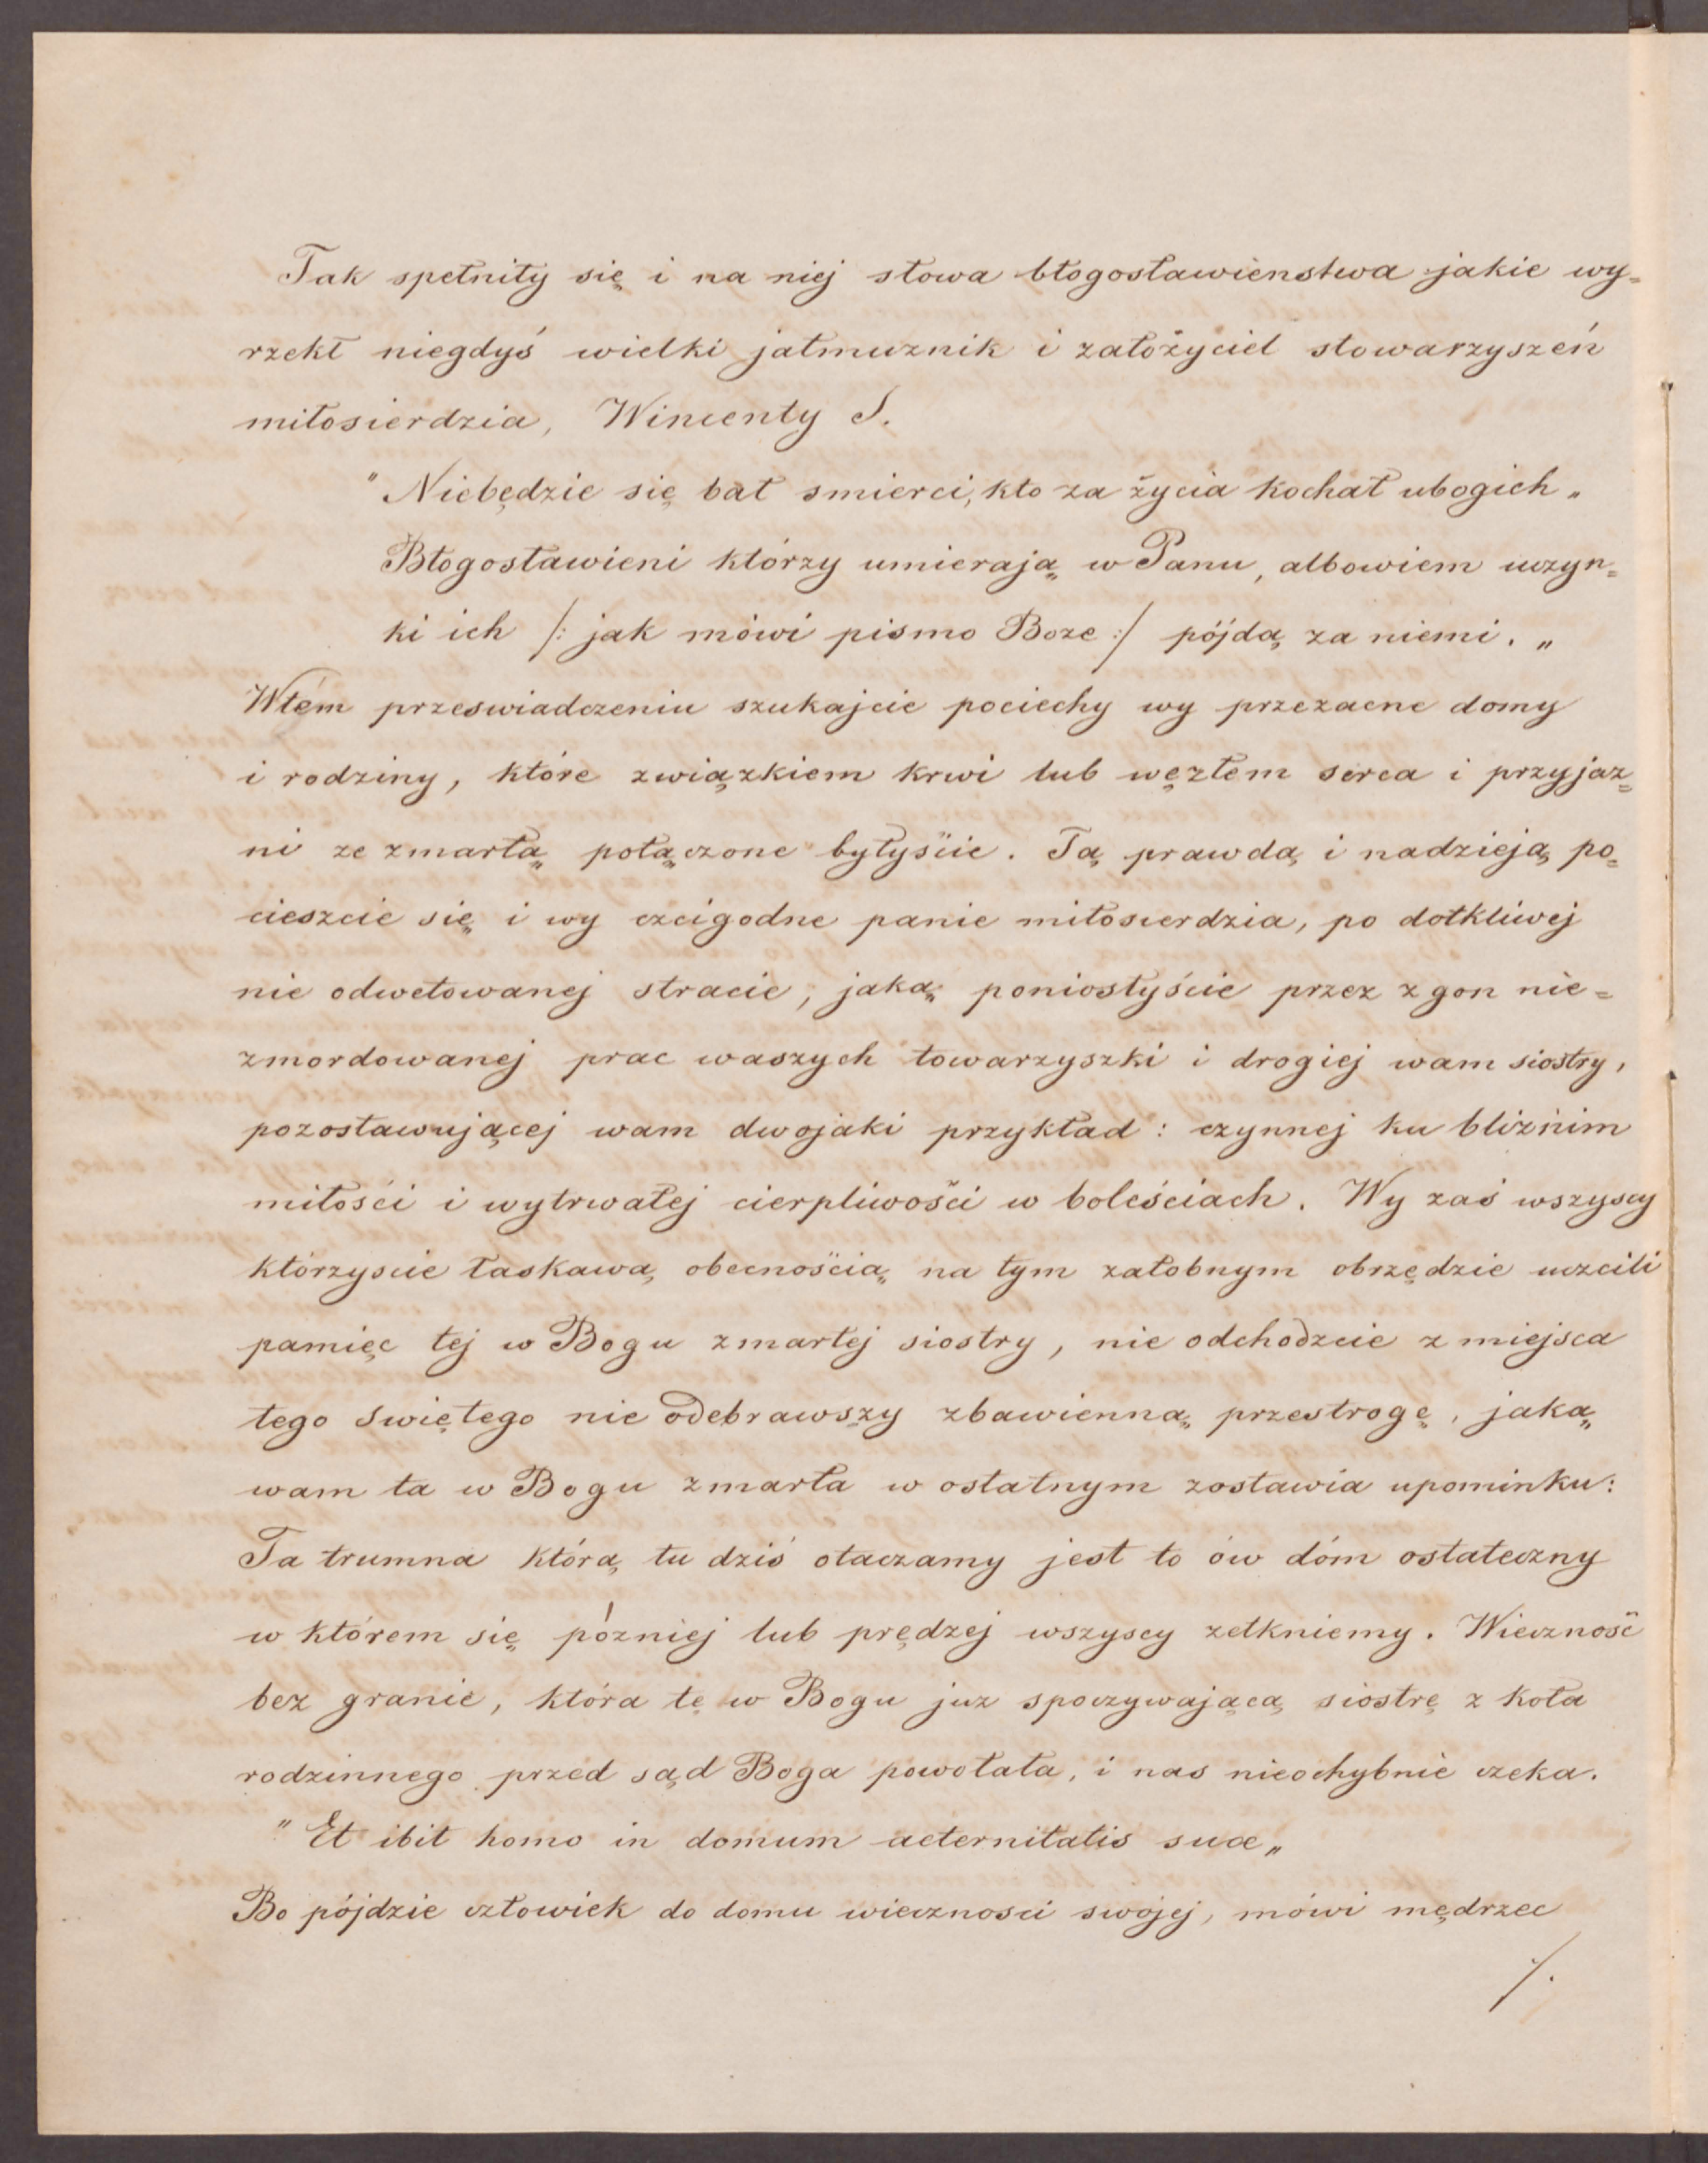 Tak spełniły się i na niej słowa błogosławienstwa jakie wy=
rzekł niegdyś wielki jałmuznik i założyciel stowarzyszeń
miłosierdzia, Wincenty S.
"Niebędzie się bał smierci, kto za życia kochał ubogich„
Błogosławieni którzy umierają w Panu, albowiem uczyn=
ki ich /: jak mówi pismo Boze :/ pójdą za niemi. „
Wtém przeswiadczeniu szukajcie pociechy wy przezacne domy
i rodziny, które związkiem krwi lub węzłem serca i przyjaz=
ni ze zmarłą połączone byłyście. Tą prawdą i nadzieją po=
cieszcie się i wy czcigodne panie miłosierdzia, po dotkliwej
nie odwetowanej stracie, jaką poniosłyście przez zgon nie=
zmordowanej prac waszych towarzyszki i drogiej wam siostry,
pozostawującej wam dwojaki przykład: czynnej ku bliźnim
miłości i wytrwałej cierpliwości w boleściach. Wy zaś wszyscy
którzyscie łaskawą obecnością na tym załobnym obrzędzie uczcili
pamięc tej w Bogu zmarłej siostry, nie odchodzcie z miejsca
tego swiętego nie odebrawszy zbawienną przestrogę, jaką
wam ta w Bogu zmarła w ostatnym zostawia upominku:
Ta trumna którą tu dziś otaczamy jest to ów dóm ostateczny
w którem się pózniej lub prędzej wszyscy zetkniemy. Wieczność
bez granic, która tę w Bogu juz spoczywającą siostrę z koła
rodzinnego przed sąd Boga powołała, i nas nieochybnie czeka.
"Et ibit homo in domum aeternitatis suae„
Bo pójdzie człowiek do domu wiecznosci swojej, mówi mędrzec
·/.